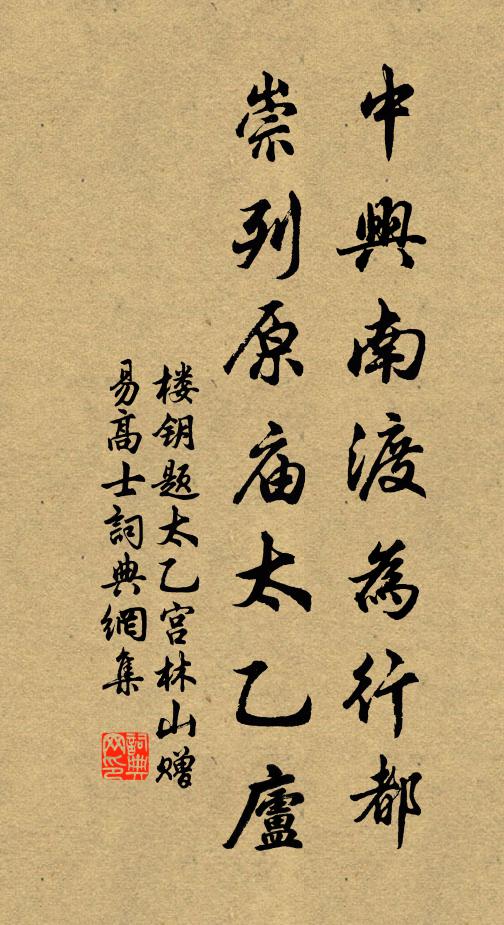 中興南渡為行都
崇列原庙太乙廬
楼钥题太乙宫林山赠
易高士詞典網集
詞典網印